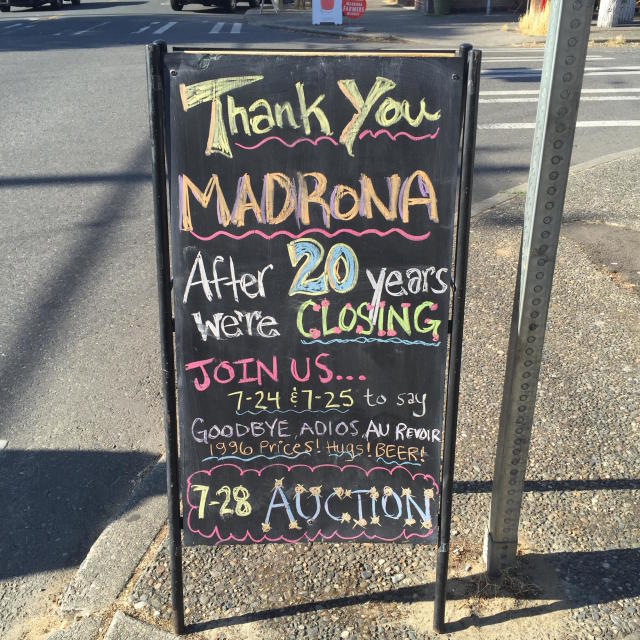 Thank You
MADRONA
After 20 years
we're CLOSING
JOIN US...
7-24 & 7-25 to say
GOODBYE, ADIOS, AU REVOIR
1996 Prices! Hugs! BEER!
7-28 AUCTION